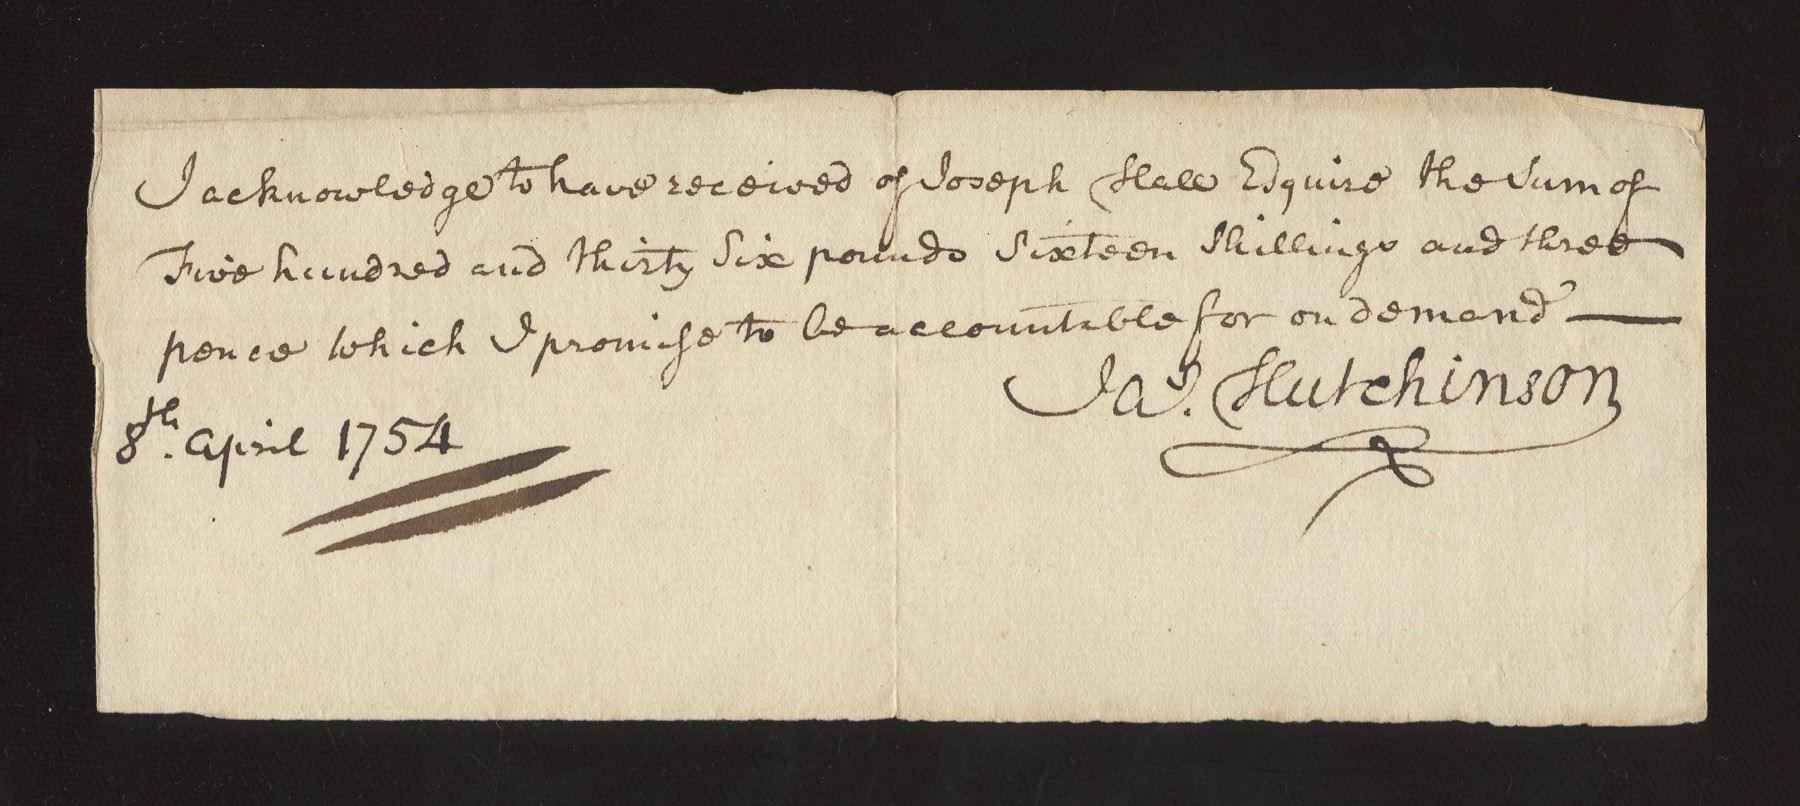 I acknowledge to have received of Joseph Hall Esquire the Sum of
Five hundred and thirty Six pounds Sixteen Shillings and three
pence which I promise to be accountable for on demand
Jas. Hutchinson
8th. April 1754